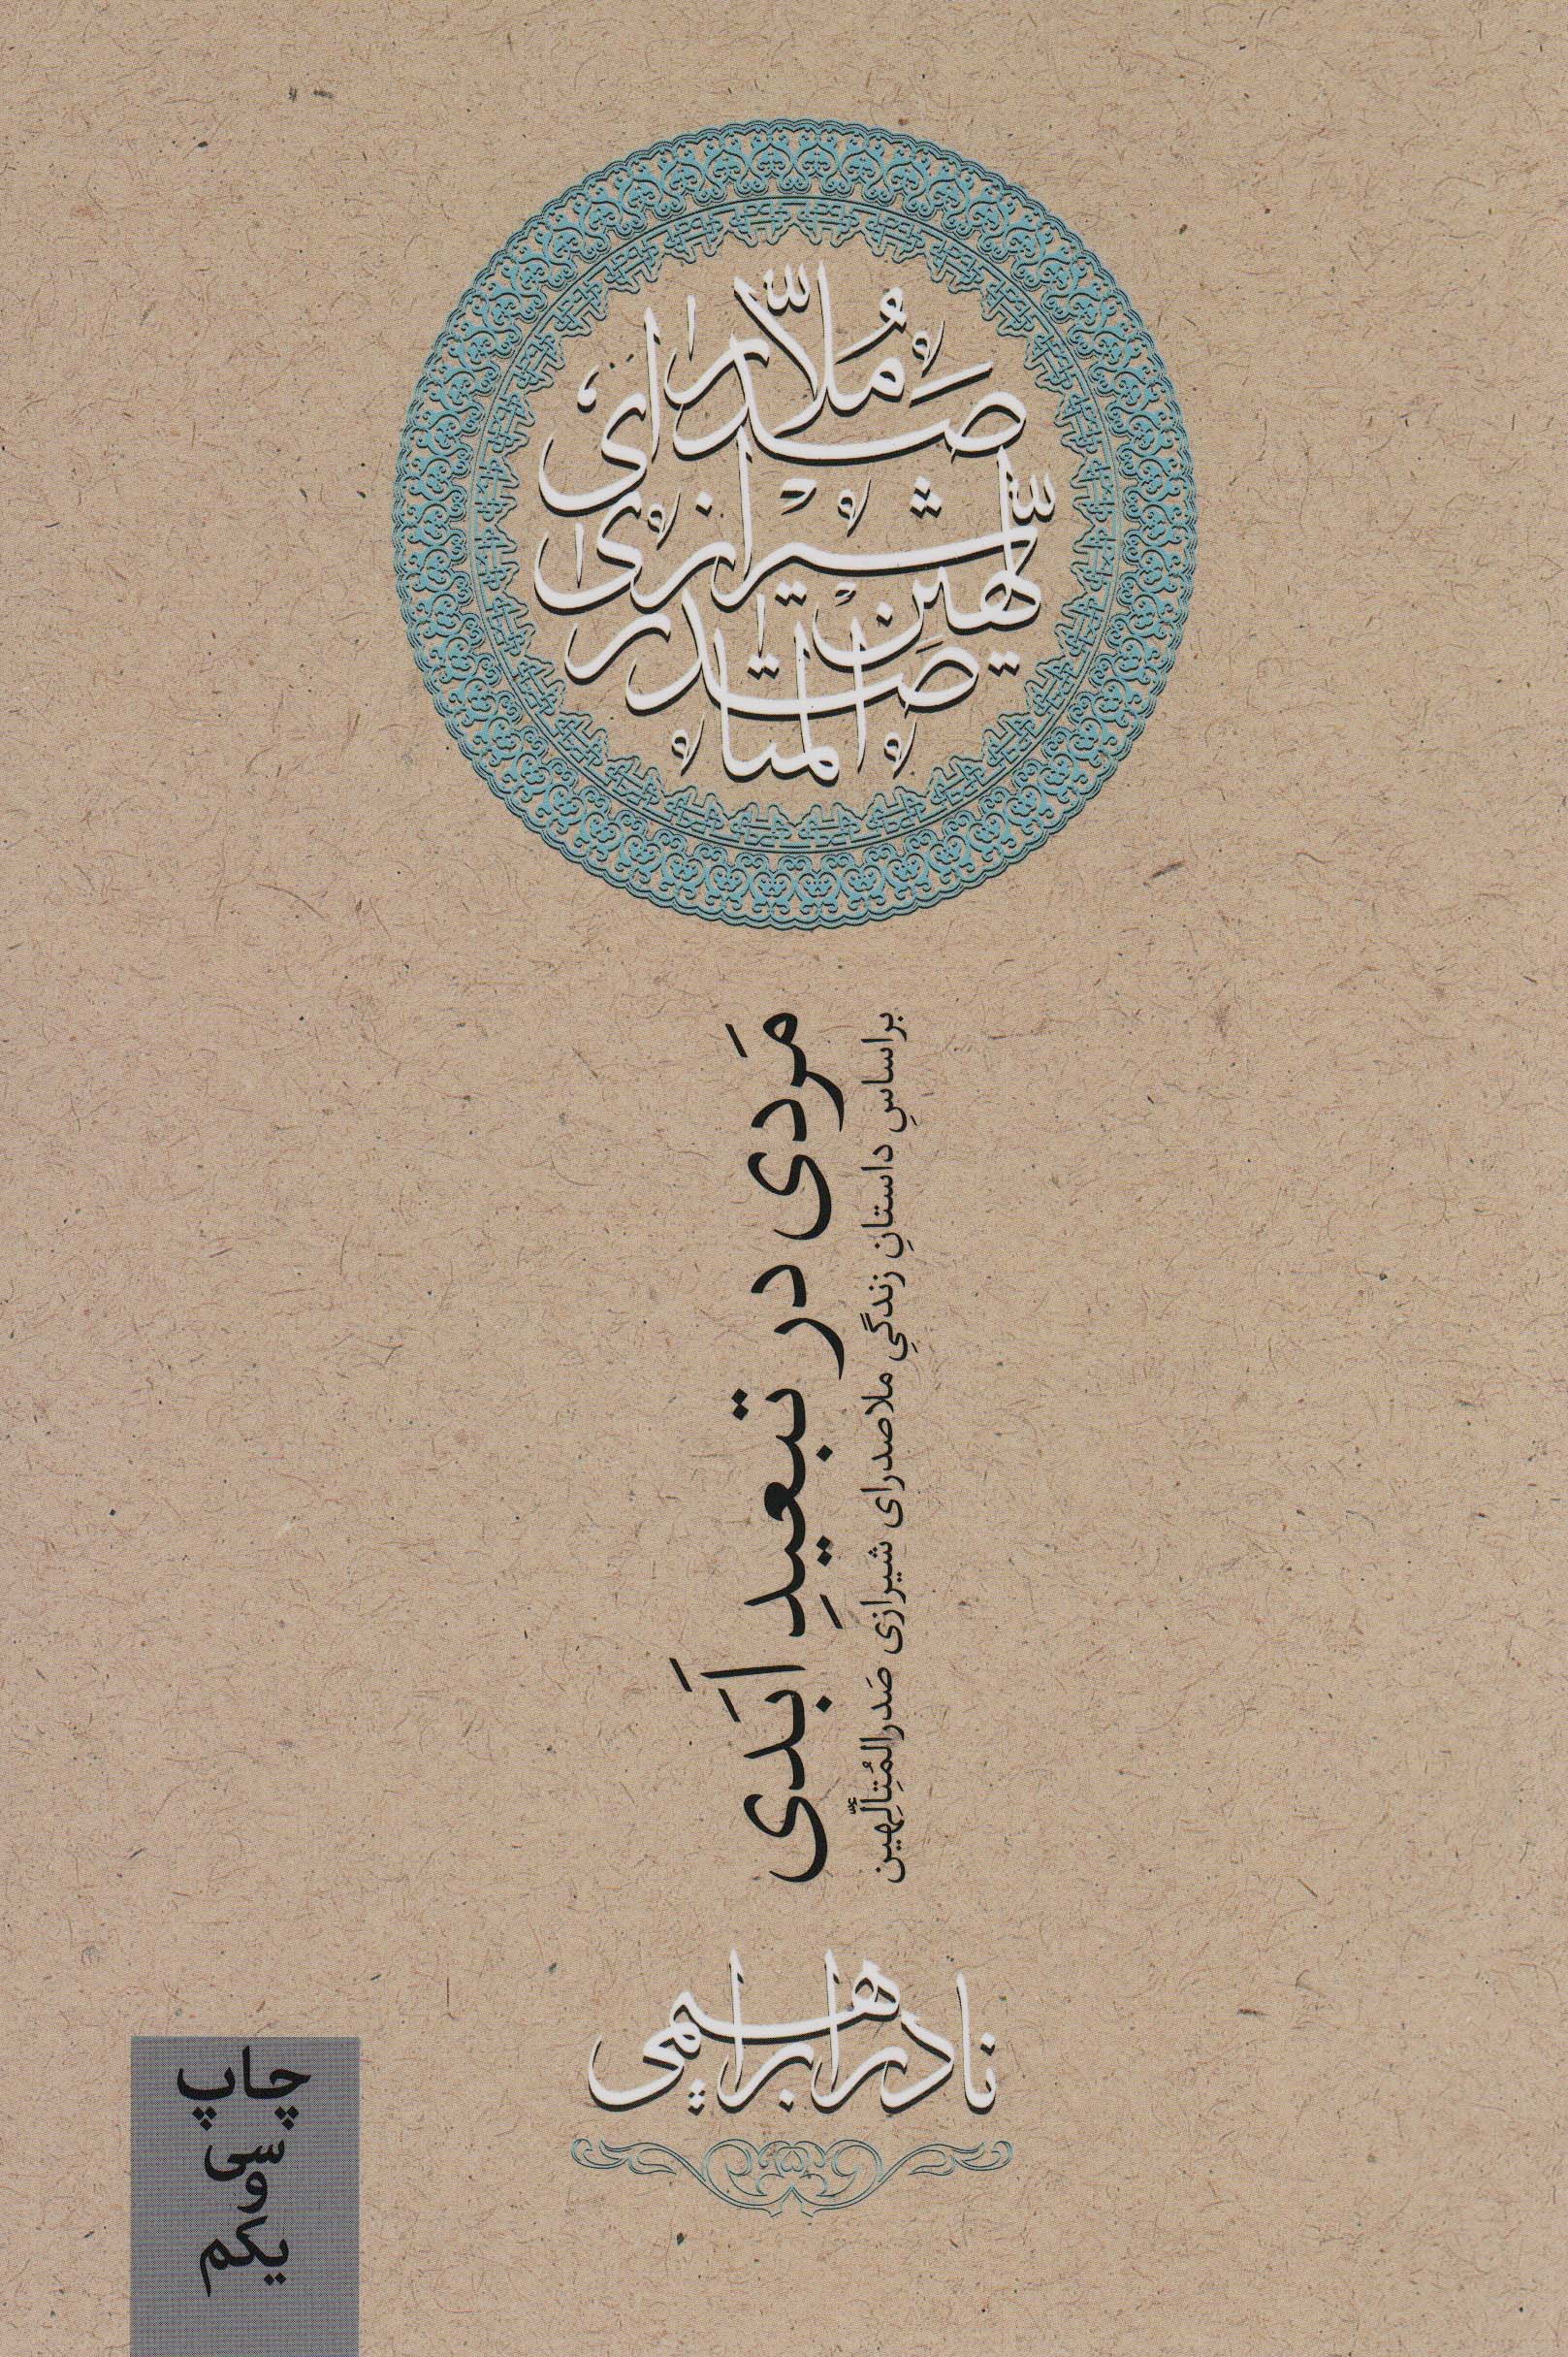 مُلاّ
صَدرای
شیرازی
صَدر
المتألّهین
مَردی در تبعیدِ اَبَدی
براساسِ داستانِ زندگیِ ملاصدرای شیرازی صَدرالمُتِألِّهین
نادر ابراهیمی
چاپ
سی
و
یکم